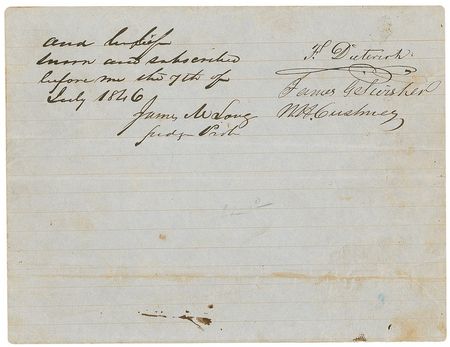 and belief
sworn and subscribed
before me the 7th of
July 1846
James M Long
Judge Prob
F. Dieterich
James G
M H Cushney